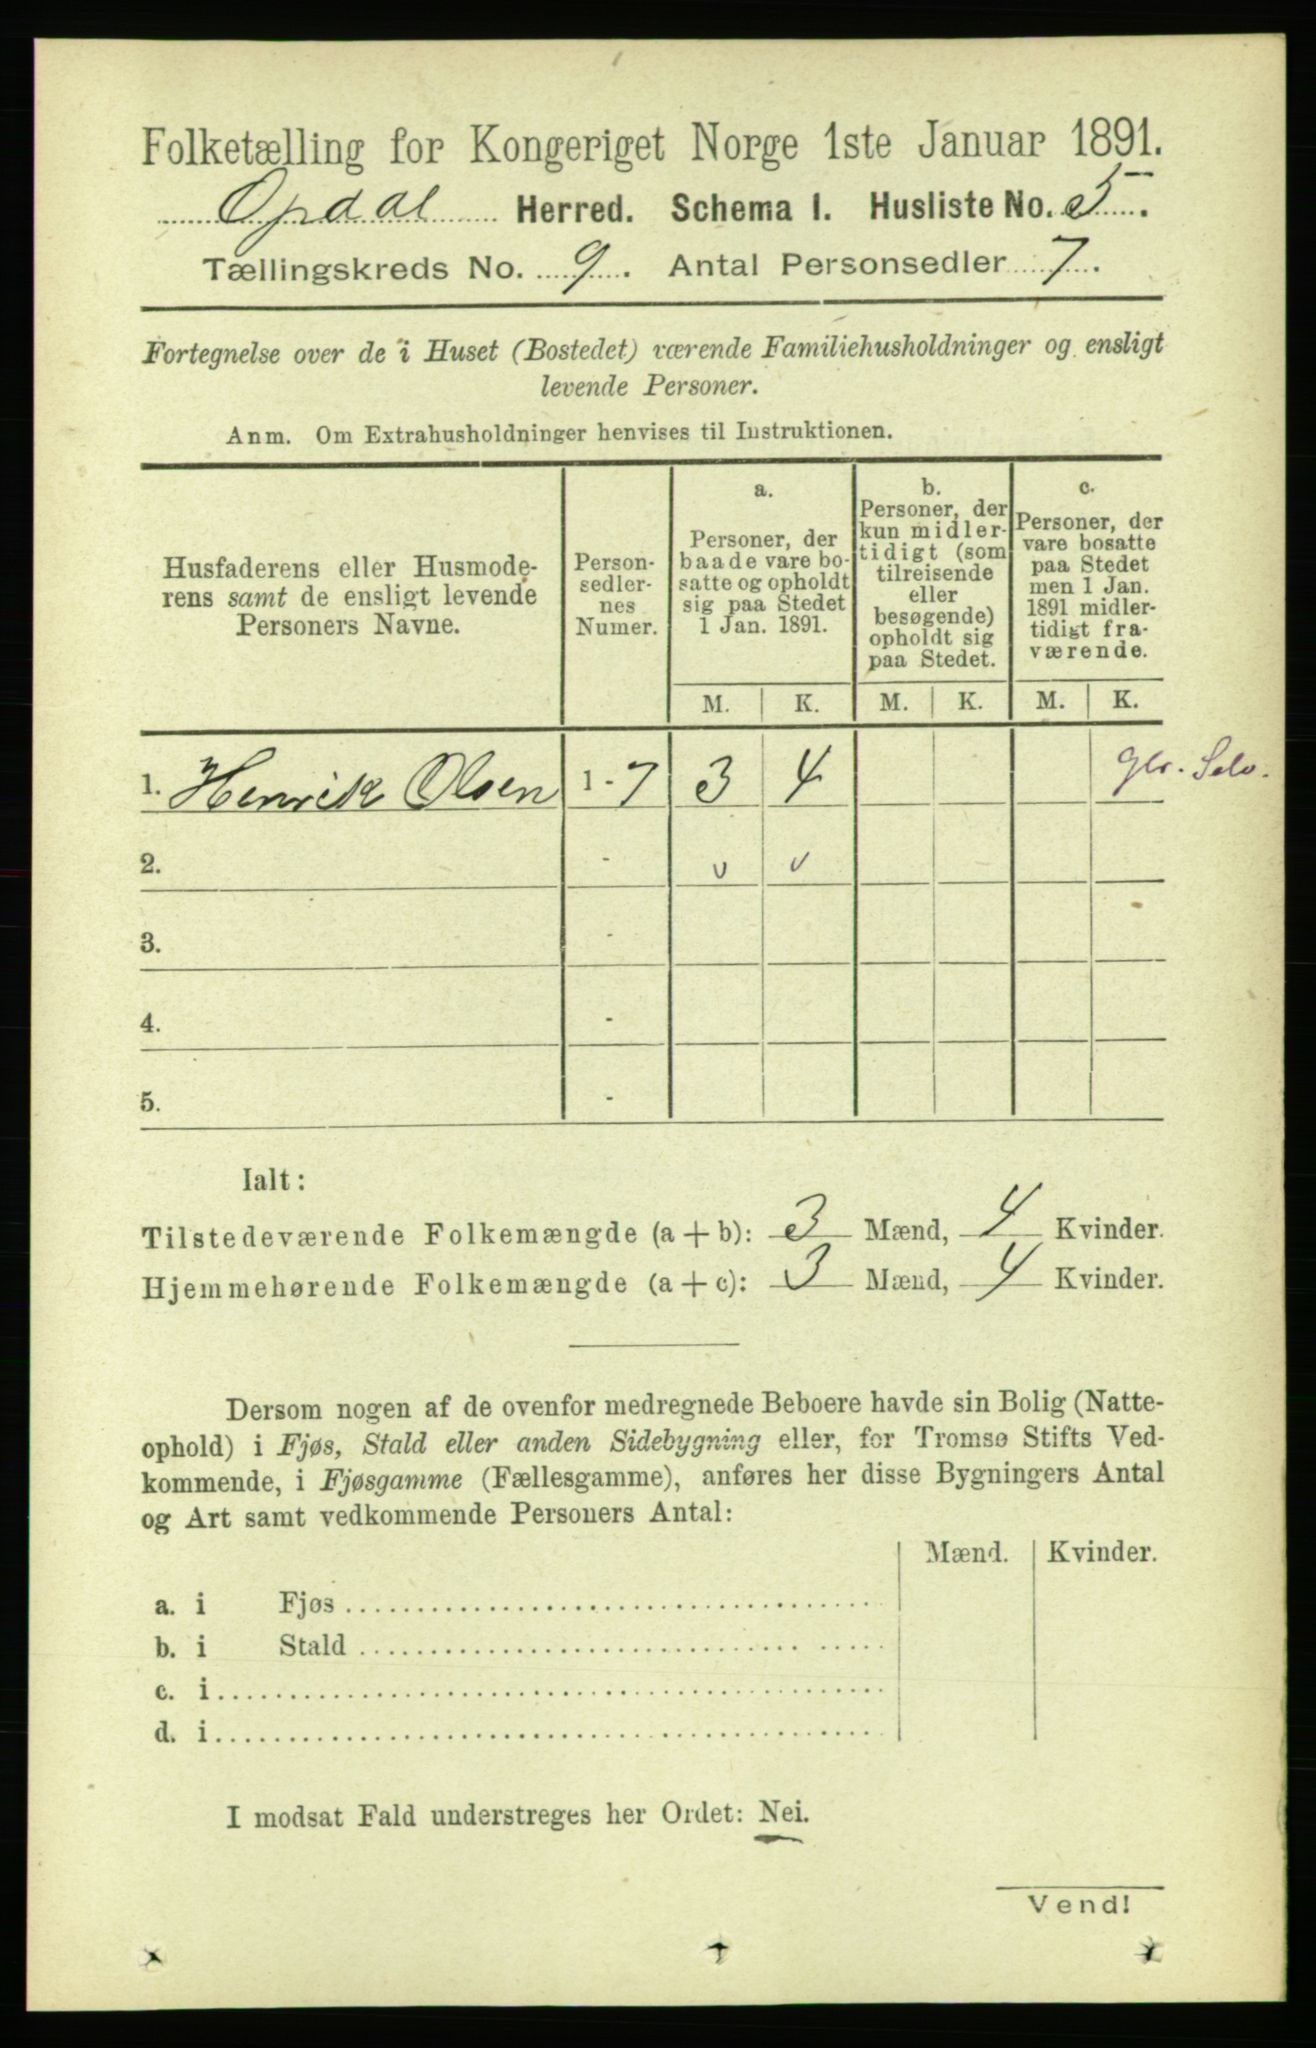 Folketælling for Kongeriget Norge 1ste Januar 1891.
Opdal Herred. Schema I. Husliste No. 5.
Tællingskreds No. 9. Antal Personsedler 7.
Fortegnelse over de i Huset (Bostedet) værende Familiehusholdninger og ensligt
levende Personer.
Anm. Om Extrahusholdninger henvises til Instruktionen.
Husfaderens eller Husmode-
rens samt de ensligt levende
Personers Navne.
Person-
sedler-
nes
Numer.
a.
Personer, der
baade vare bo-
satte og opholdt
sig paa Stedet
1 Jan. 1891.
b.
Personer, der
kun midler-
tidigt (som
tilreisende
eller
besøgende)
opholdt sig
paa Stedet.
c.
Personer, der
vare bosatte
paa Stedet
men 1 Jan.
1891 midler-
tidigt fra-
værende.
M. K. M. K. M. K.
1. Henrik Olsen 1 - 7 3 4 Glr. Selv.
2. - v v
3. -
4. -
5. -
Ialt:
Tilstedeværende Folkemængde (a + b): 3 Mænd, 4 Kvinder.
Hjemmehørende Folkemængde (a + c): 3 Mænd, 4 Kvinder.
Dersom nogen af de ovenfor medregnede Beboere havde sin Bolig (Natte-
ophold) i Fjøs, Stald eller anden Sidebygning eller, for Tromsø Stifts Ved-
kommende, i Fjøsgamme (Fællesgamme), anføres her disse Bygningers Antal
og Art samt vedkommende Personers Antal:
Mænd. Kvinder.
a. i Fjøs
b. i Stald
c. i
d. i
I modsat Fald understreges her Ordet: Nei.
Vend!